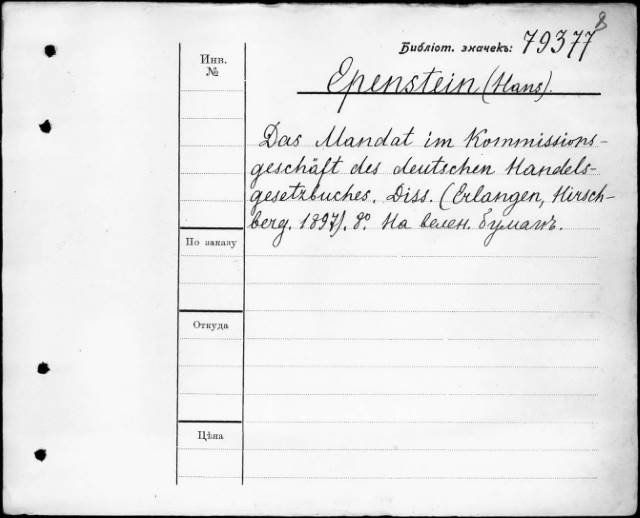 8
Библіот. значекъ: 79377
Инв.
№
Epenstein (Hans).
Das Mandat im Kommissions-
geschäft des deutschen Handels-
gesetzbuches. Diss. (Erlangen, Hirsch-
berg. 1897). 8° На велен. бумагѣ.
По заказу
Откуда
Цѣна